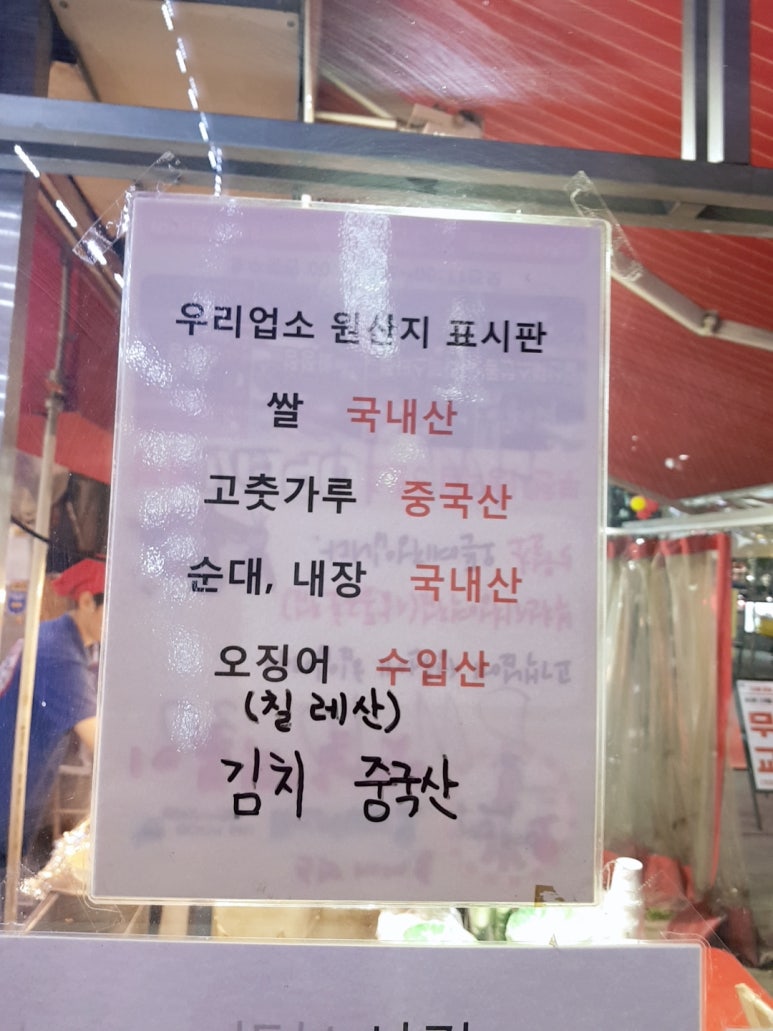 우리업소 원산지 표시판
쌀 국내산
고춧가루 중국산
순대, 내장 국내산
오징어 수입산
(칠레산)
김치 중국산